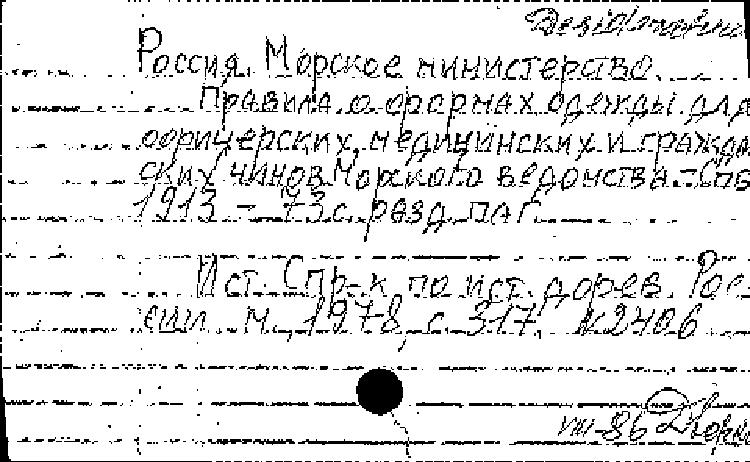 Desiderata
Россия. Морское министерство.
Правила о формах одежды для
офицерских, медицинских и граждан
ских чинов Морского ведомства. - Спб
1913 - 73 с. разд. паг.
Ист. Спр-к по ист. дорев. Рос-
сии. М., 1978, с. 317. №2406
VIII-86